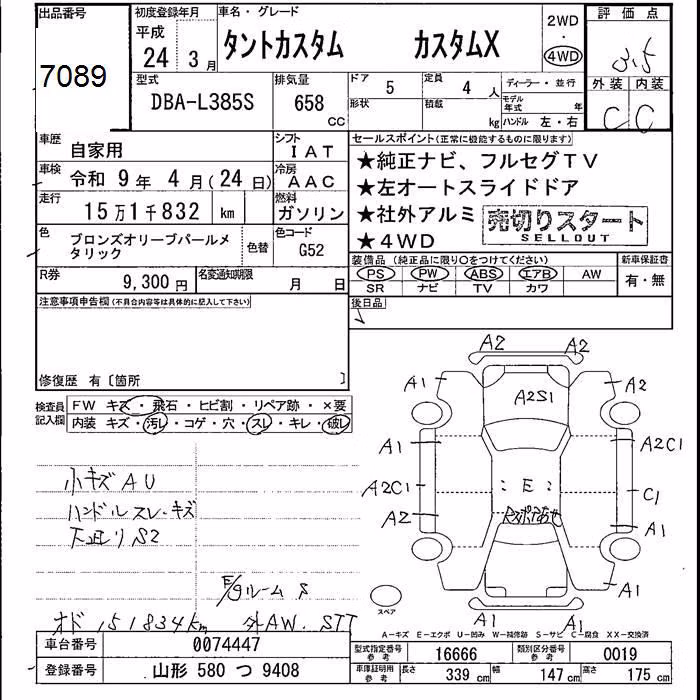 出品番号
7089
初度登録年月
平成
24 3月
車名・グレード
タントカスタム カスタムX
2WD
・
4WD
評価点
3.5
外装 内装
C C
型式
DBA-L385S
排気量
658
CC
ドア 5
定員 4 人
形状
積載 kg
ディーラー・並行
モデル年式 年
ハンドル 左・右
車歴
自家用
シフト
IAT
車検
令和 9年 4月(24日)
冷房
AAC
走行
15万1千832 km
燃料
ガソリン
色
ブロンズオリーブパールメタリック
色替
色コード
G52
R券
9,300円
名変通知期限
月 日
セールスポイント(正常に機能するものに限ります)
★純正ナビ、フルセグTV
★左オートスライドドア
★社外アルミ
★4WD
売切りスタート
SELLOUT
装備品(純正品に限り○をつけてください)
PS PW ABS エアB AW
SR ナビ TV カワ
新車保証書
有・無
後日品
注意事項申告欄(不具合内容等は具体的に記入して下さい)
修復歴 有〔箇所 〕
検査員記入欄
FW キズ・飛石・ヒビ割・リペア跡・×要
内装 キズ・汚レ・コゲ・穴・スレ・キレ・破レ
小キズ AU
ハンドルスレ・キズ
下廻りS2
E/gルーム S
オド 151834km 外AW. STT
A2 A2
A1 A2
A2S1
A1 A2C1
A2C1 C1
: E :
A2 A1
A1 A1
A1 A1
スペア
A−キズ E−エクボ U−凹み W−補修跡 S−サビ C−腐食 XX−交換済
車台番号
0074447
登録番号
山形 580 つ 9408
型式指定番号
参考
16666
類別区分番号
参考
0019
車庫証明用
参考
長さ 339 cm
幅 147 cm
高さ 175 cm